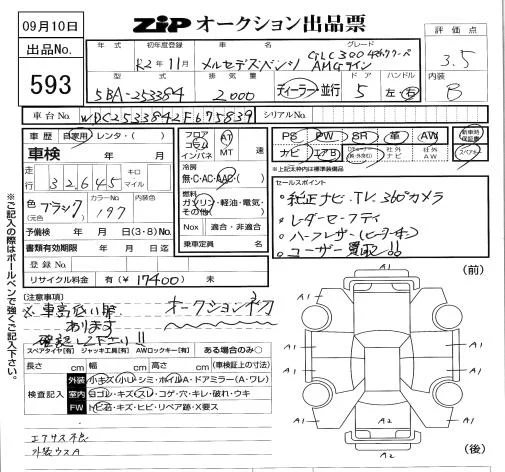 09月10日
ZIP オークション出品票
評価点
3.5
出品No.
593
年式 初年度登録 車名 グレード
R2年11月 メルセデスベンツ GLC300 4マチッククーペ AMGライン
型式 排気量 ドア ハンドル 内装
5BA-253384 2000 ディーラー・並行 5 左・右 B
車台No. WDC2533842F675839 シリアルNo.
車歴 自家用・レンタ・( )
車検 年 月
走行 32645 キロ マイル
色(元色) ブラック カラーNo. 197 内装色
予備検 年 月 日(3・8)No.
書類有効期限 年 月 日迄
登録No.
リサイクル料金 有(¥17400) 未
フロア コラム インパネ AT MT 速
冷房
無・C・AC・AAC・( )
燃料
ガソリン・軽油・電気・その他( )
Nox 適合・非適合
乗車定員 名
PS PW SR 革 AW 新車時保証書
ナビ エアB 社外ナビ 社外AW スペアキー
*上記太枠内は標準装備品
セールスポイント
・純正ナビ.TV.360°カメラ
・レーダーセーフティ
・ハーフレザー(ヒーター付)
・ユーザー買取!!
(注意事項)
※車高低い為
あります
確認して下さい!!
オークションネク
スペアタイヤ[有] ジャッキ工具[有] AWロックキー[有] ある場合のみ○
長さ cm 幅 cm 高さ cm (車検証上の寸法)
検査記入
外装 小キズ(小)・シミ・ホイルA・ドアミラー(A・ワレ)
室内 ヨゴレ・キズ・スレ・コゲ・穴・キレ・破れ・ウキ
FW トビ石・キズ・ヒビ・リペア跡・X要ス
エアサス不良
外装ウスA
(前)
A1
A1
A1
A1
A1
A1
A1
A1
A2
A2
(後)
※ご記入の際はボールペンで強くご記入下さい。